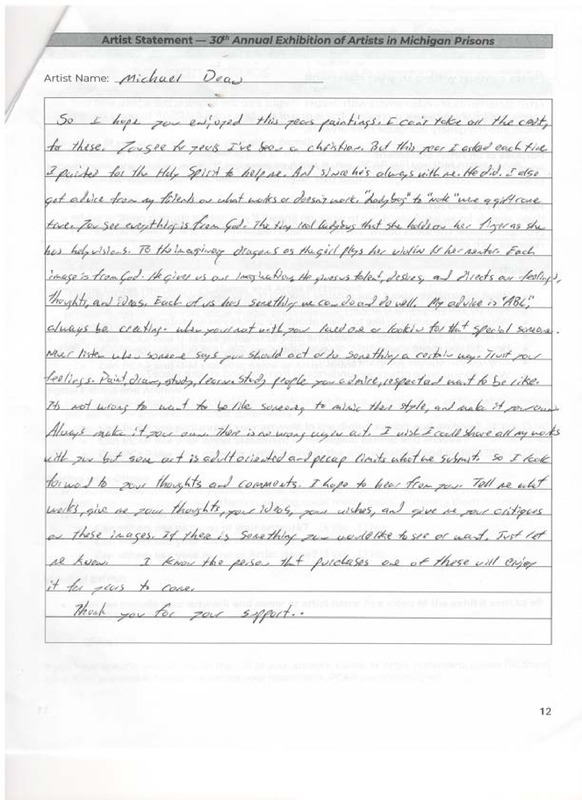 Artist Statement — 30th Annual Exhibition of Artists in Michigan Prisons
Artist Name: Michael Dean
So I hope you enjoyed this years paintings. I can't take all the credit,
for these. You see for years I've been a christian. But this year I asked each time
I painted for the Holy Spirit to help me. And since he's always with me. He did. I also
get advice from my friends on what works or doesn't work. "ladybug" to "note" were a gift
You see everything is from God. The tiny real ladybug that she holds on her finger as she
has help visions. To the imaginary dragons as the girl plays her violin to her mentor. Each
image is from God. He gives us our imagination, He gives us talent, desires, and directs our feelings,
thoughts, and ideas. Each of us has something we can do and do well. My advice is "ABC",
always be creating. when your not with your loved one or lookin for that special someone.
Never listen when someone says you should act or do something a certain way. Trust your
feelings. Paint, draw, study, learn study people you admire, respect and want to be like.
It's not wrong to want to be like someone, to mimic their style, and make it your own
Always make it your own. There is no wrong way in art. I wish I could share all my works
with you but some art is adult oriented and pecap limits what we submit. So I look
forward to your thoughts and comments. I hope to hear from you. Tell me what
works, give me your thoughts, your ideas, your wishes, and give me your critiques
on these images. If there is something you would like to see or want. Just let
me know. I know the person that purchases one of these will enjoy
it for years to come.
Thank you for your support..
12